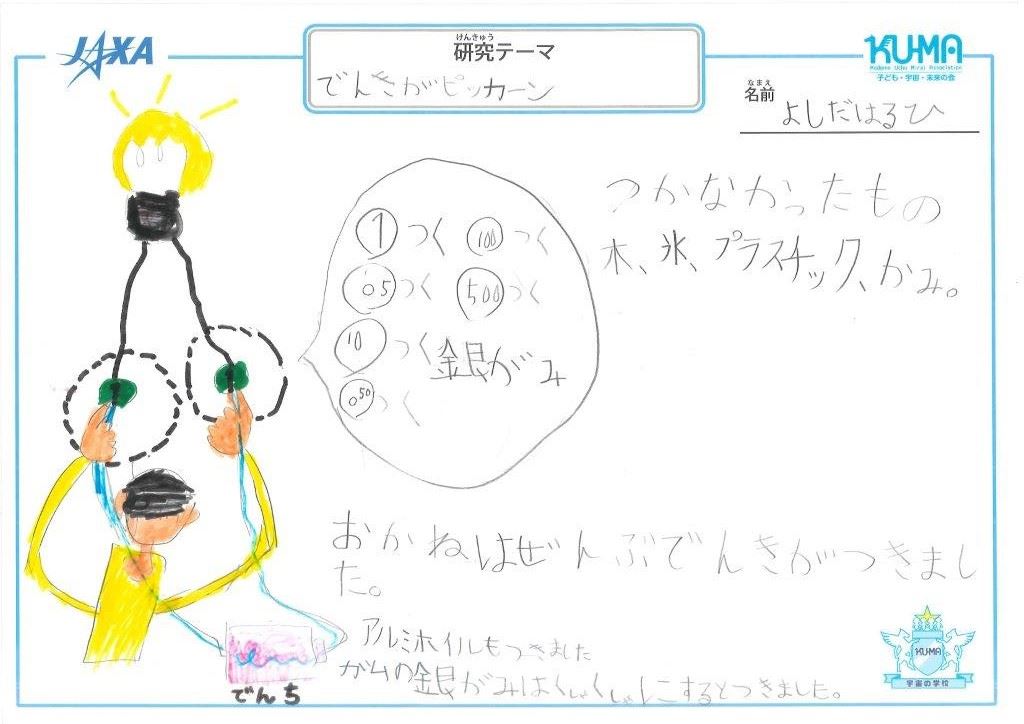 JAXA
けんきゅう
研究テーマ
でんきがピッカーン
KU-MA
Kodomo Uchu Mirai Association
子ども・宇宙・未来の会
なまえ
名前
よしだはるひ
1 つく 100 つく
05 つく 500 つく
10 つく 銀がみ
050 つく
つかなかったもの
木、氷、プラスチック、かみ。
おかねはぜんぶでんきがつきまし
た。
アルミホイルもつきました
ガムの銀がみはくしゃくしゃにするとつきました。
でんち
KU-MA
宇宙の学校